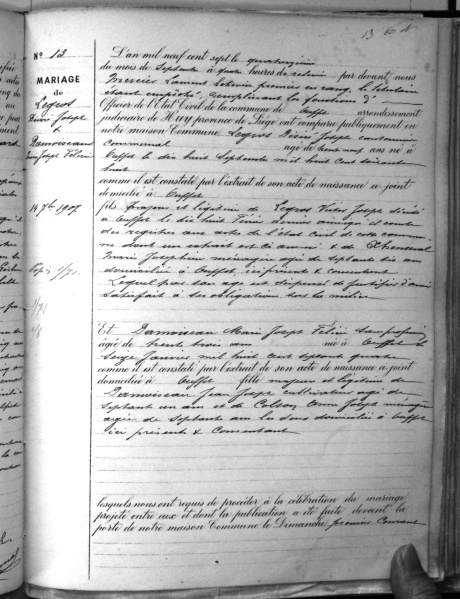 N° 13
MARIAGE
de
Legros
Joseph
&
Damoiseau
Marie Joseph
14 7bre 1907
L'an mil neuf cent sept le quatorzième
du mois de Septembre à quatre heures de relevée par devant nous
Mercier Laurent Echevin premier en rang, le titulaire
étant empêché, remplissant les fonctions d'
Officier de l'État Civil de la commune de Ouffet arrondissement
judiciaire de Huy province de Liége ont comparu publiquement en
notre maison Commune Legros Joseph cantonnier
communal âgé de trente neuf ans né à
Ouffet le dix huit Septembre mil huit cent soixante
huit
comme il est constaté par l'extrait de son acte de naissance ci-joint
domicilié à Ouffet
fils majeur et légitime de Legros Victor Joseph décédé
à Ouffet le dix huit
des registres aux actes de l'état civil de cette commune
dont un extrait est ci annexé & de
Marie Josephine ménagère âgée de septante six ans
domiciliée à Ouffet, ici présente & consentante
Lequel par son âge est dispensé de justifier d'avoir
satisfait à ses obligations sur la milice
Et Damoiseau Marie Joseph sans profession
âgée de trente trois ans née à Ouffet le
Seize Janvier mil huit cent septante quatre
comme il est constaté par l'extrait de son acte de naissance ci-joint
domiciliée à Ouffet fille majeure et légitime de
Damoiseau Jean Joseph cultivateur âgé de
Septante un ans et de Anne Joseph ménagère
âgée de Septante ans les deux domiciliés à Ouffet
ici présents & consentant
lesquels nous ont requis de procéder à la célébration du mariage
projeté entre eux et dont la publication a été faite devant la
porte de notre maison Commune le Dimanche premier Courant